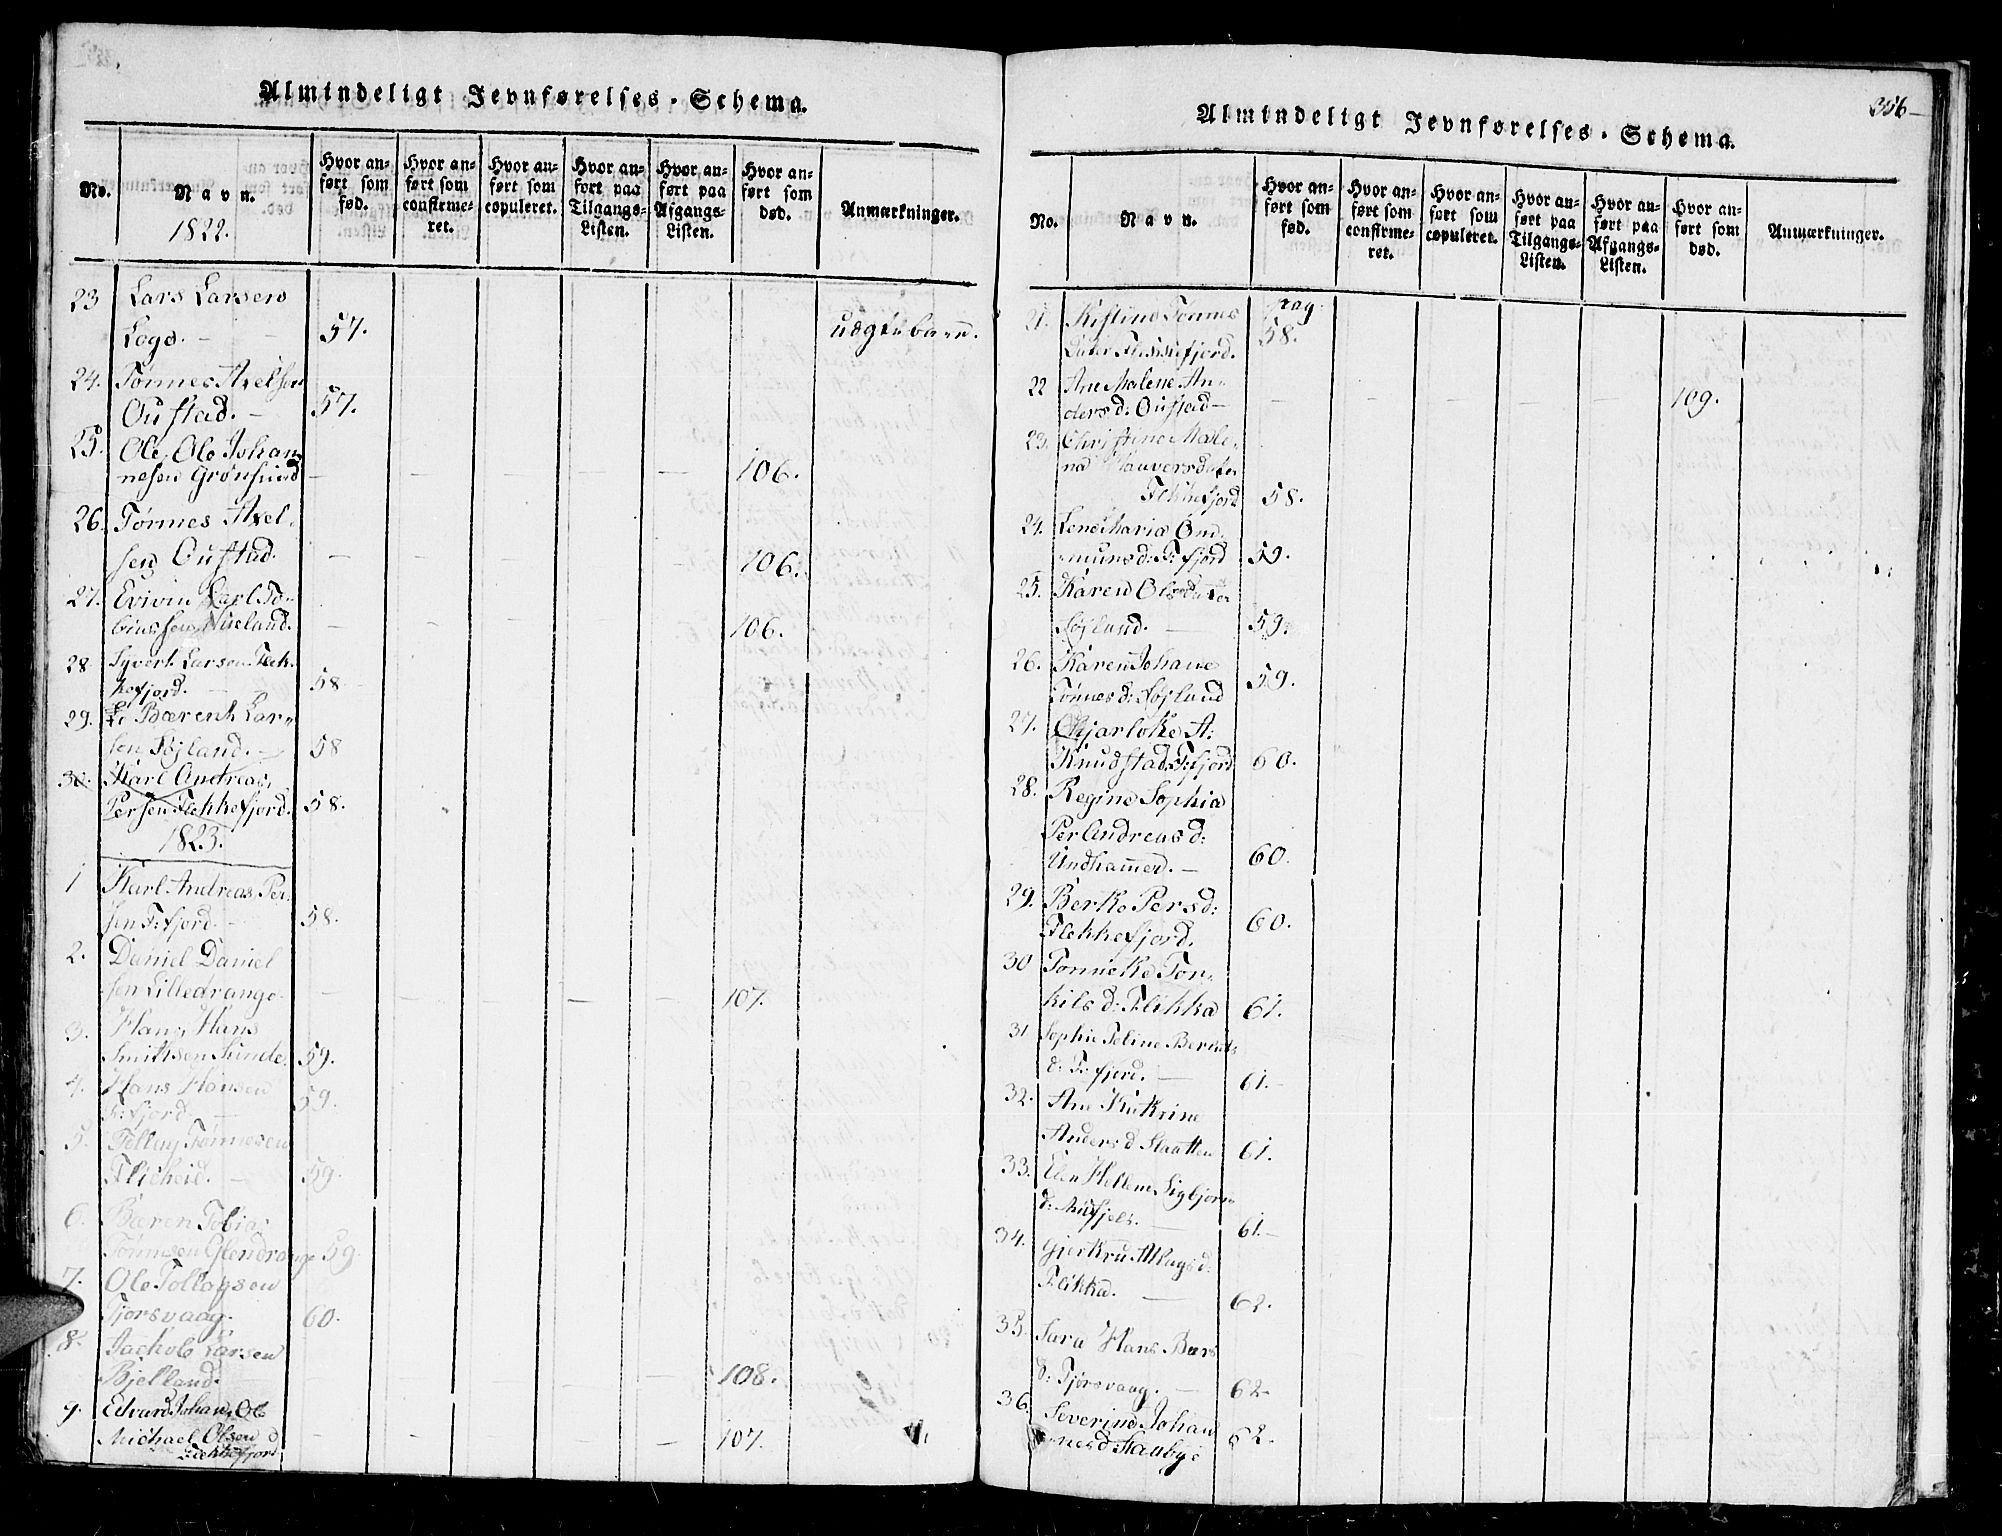 Almindeligt Jevnførelses-Schema.
No.
Navn.
1822.
Hvor anført som fød.
Hvor anført som confirmeret.
Hvor anført som copuleret.
Hvor anført paa Tilgangs-Listen.
Hvor anført paa Afgangs-Listen.
Hvor anført som død.
Anmærkninger.
23 Lars Larsen
Loga. - 57. uægte barn.
24. Tønnes Axelsen
Oustad. - 57.
25. Ole, Ole Johan
nesen Grønsund 106.
26. Tønnes Axel-
sen Oustad. 106.
27. Evivin Carl To-
biassen Nueland. 106.
28 Syvert Larsen Flek-
kefjord. 58
29. Bærent Lar-
sen Føjland. - 58
30. Karl Andreas,
Persen Flekkefjord. 58.
1823.
1 Karl Andreas Per-
sen F:fjord. - 58.
2. Daniel Daniel
sen Lilledrange. 107.
3. Hans Hans
Smithsen Sunde. 59.
4. Hans Hansen
F:fjord. 59.
5. Tollag Tønnesen
Flicheid. - 59.
6. Bæren Tobias
Tønnesen Glendrange 59.
7. Ole Tollagsen
Fjorsvaag. 60.
8. Jackob Larsen
Bjelland. 108.
9. Edvard Johan, Ole
Michael Olsen
Flekkefjord 107.
356-
Almindeligt Jevnførelses-Schema.
No.
Navn.
Hvor anført som fød.
Hvor anført som confirmeret.
Hvor anført som copuleret.
Hvor anført paa Tilgangs-Listen.
Hvor anført paa Afgangs-Listen.
Hvor anført som død.
Anmærkninger.
21. Kistine Tønnes pag.
Dater Flekkefjord. 58.
22 Ane Malene An-
ders d: Oustad - 109.
23. Christine Male-
na Hauversdater
Flekkefjord 58.
24. Lene Maria Ond-
muns d: F:fjord 59.
25. Karen Olsdatter
Føjland. - 59.
26. Karen Johane
Tønnes d: Føjland 59.
27. Chjarloke A:
Knudstad F:fjord 60.
28. Regine Sophia
Per Andreas d:
Undhammer. - 60.
29. Berke Pers d:
Flekkefjord. 60.
30 Tonneke Tor-
kils d: Flikka 61.
31 Sophie Teline Bernts
d: F:fjord. - 61.-
32. Ane Katrine
Anders d Slaatten 61.
33. Elen Hellene Sigbjørn
d: 61.-
34. Gjertru Atlags d:
Flikka. - 62.
35. Sara Hans Bærs
d: Fjørsvaag. - 62-
36. Severine Johan
nes d Stauby: 62.